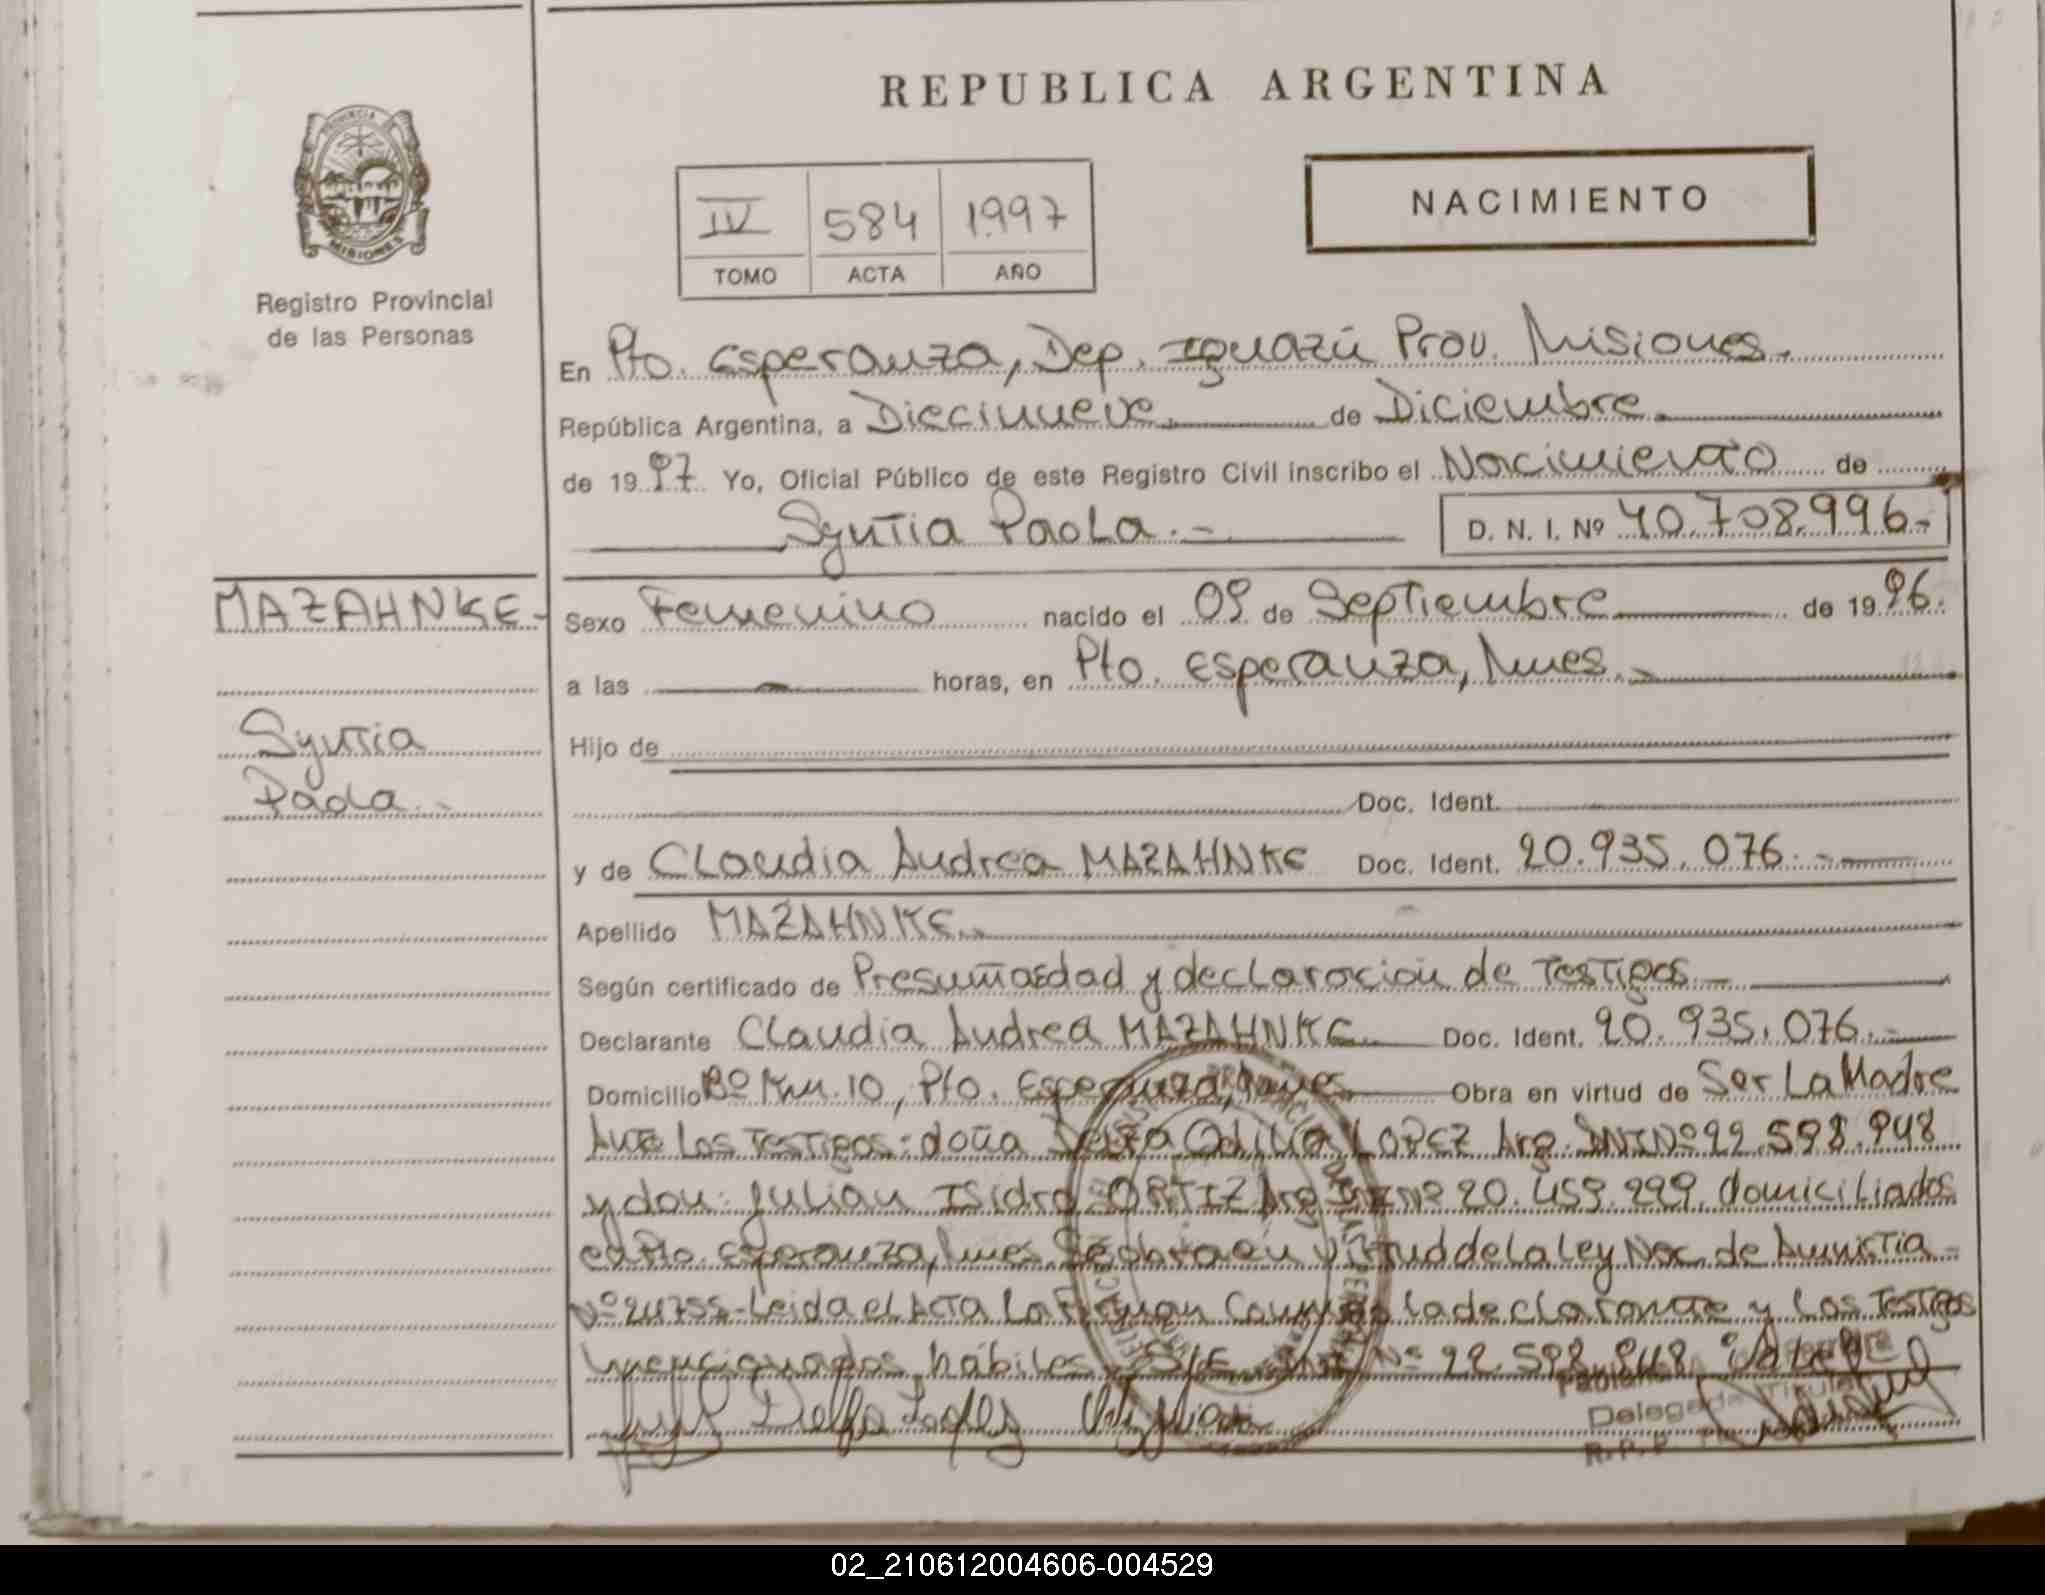 REPUBLICA ARGENTINA
PROVINCIA
MISIONES
Registro Provincial
de las Personas
IV 584 1.997
TOMO ACTA AÑO
NACIMIENTO
En Pto. Esperanza, Dep. Iguazú Prov. Misiones.
República Argentina, a Diecinueve de Diciembre
de 19 97 Yo, Oficial Público de este Registro Civil inscribo el Nacimiento de
Syntia Paola.- D. N. I. Nº 40.708.996.-
MAZAHNKE-
Syntia
Paola.-
Sexo Femenino nacido el 09 de Septiembre de 19 96.
a las — horas, en Pto. Esperanza, Mnes.-
Hijo de
Doc. Ident.
y de Claudia Andrea MAZAHNKE Doc. Ident. 20.935.076.-
Apellido MAZAHNKE.-
Según certificado de y declaración de Testigos.-
Declarante Claudia Andrea MAZAHNKE Doc. Ident. 20.935.076.-
Domicilio Bº Km. 10, Pto. Esperanza, Mnes. Obra en virtud de Ser La Madre
Ante Los Testigos: doña LOPEZ Arg. DNI Nº 22.598.948
y don: Julian Isidro ORTIZ Arg. DNI Nº 20.459.299, domiciliados
en Pto. Esperanza, Mnes. Se obra en virtud de la Ley Nac. de Amnistia
Nº 24755- Leida el Acta La Firman Conmigo la declarante y Los Testigos
mencionados, hábiles. S/E DNI Nº 22.598.948 Vale
Delegada Titular
R.P.P.
02_210612004606-004529